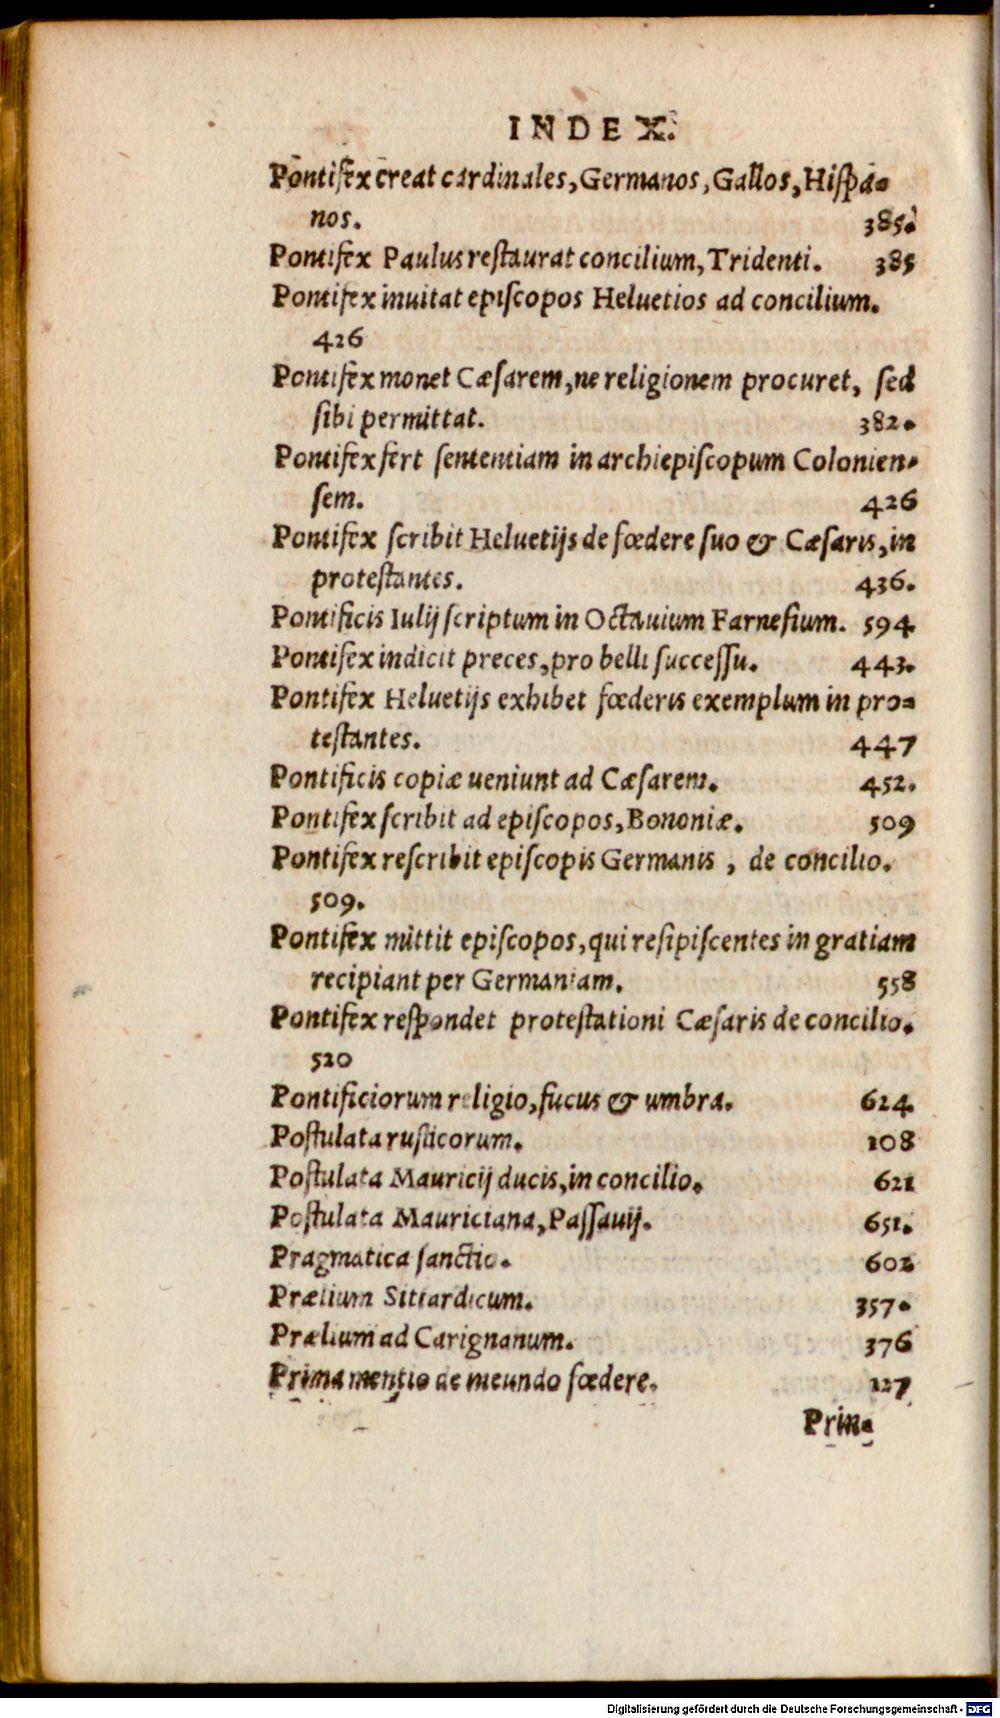 INDEX.
Pontifex creat cardinales, Germanos, Gallos, Hiſpa-
nos. 385.
Pontifex Paulus reſtaurat concilium, Tridenti. 385
Pontifex inuitat epiſcopos Heluetios ad concilium.
426
Pontifex monet Cæſarem, ne religionem procuret, ſed
ſibi permittat. 382.
Pontifex fert ſententiam in archiepiſcopum Colonien-
ſem. 426
Pontifex ſcribit Heluetijs de fœdere ſuo & Cæſaris, in
proteſtantes. 436.
Pontificis Iulij ſcriptum in Octauium Farneſium. 594
Pontifex indicit preces, pro belli ſucceſſu. 443.
Pontifex Heluetijs exhibet fœderis exemplum in pro-
teſtantes. 447
Pontificis copiæ ueniunt ad Cæſarem. 452.
Pontifex ſcribit ad epiſcopos, Bononiæ. 509
Pontifex reſcribit epiſcopis Germanis, de concilio.
509.
Pontifex mittit epiſcopos, qui reſipiſcentes in gratiam
recipiant per Germaniam. 558
Pontifex reſpondet proteſtationi Cæſaris de concilio.
520
Pontificiorum religio, fucus & umbra. 624
Poſtulata ruſticorum. 108
Poſtulata Mauricij ducis, in concilio. 621
Poſtulata Mauriciana, Paſſauij. 651.
Pragmatica ſanctio. 602
Prælium Sittardicum. 357.
Prælium ad Carignanum. 376
Prima mentio de ineundo fœdere. 127
Prim-
Digitalisierung gefördert durch die Deutsche Forschungsgemeinschaft - DFG